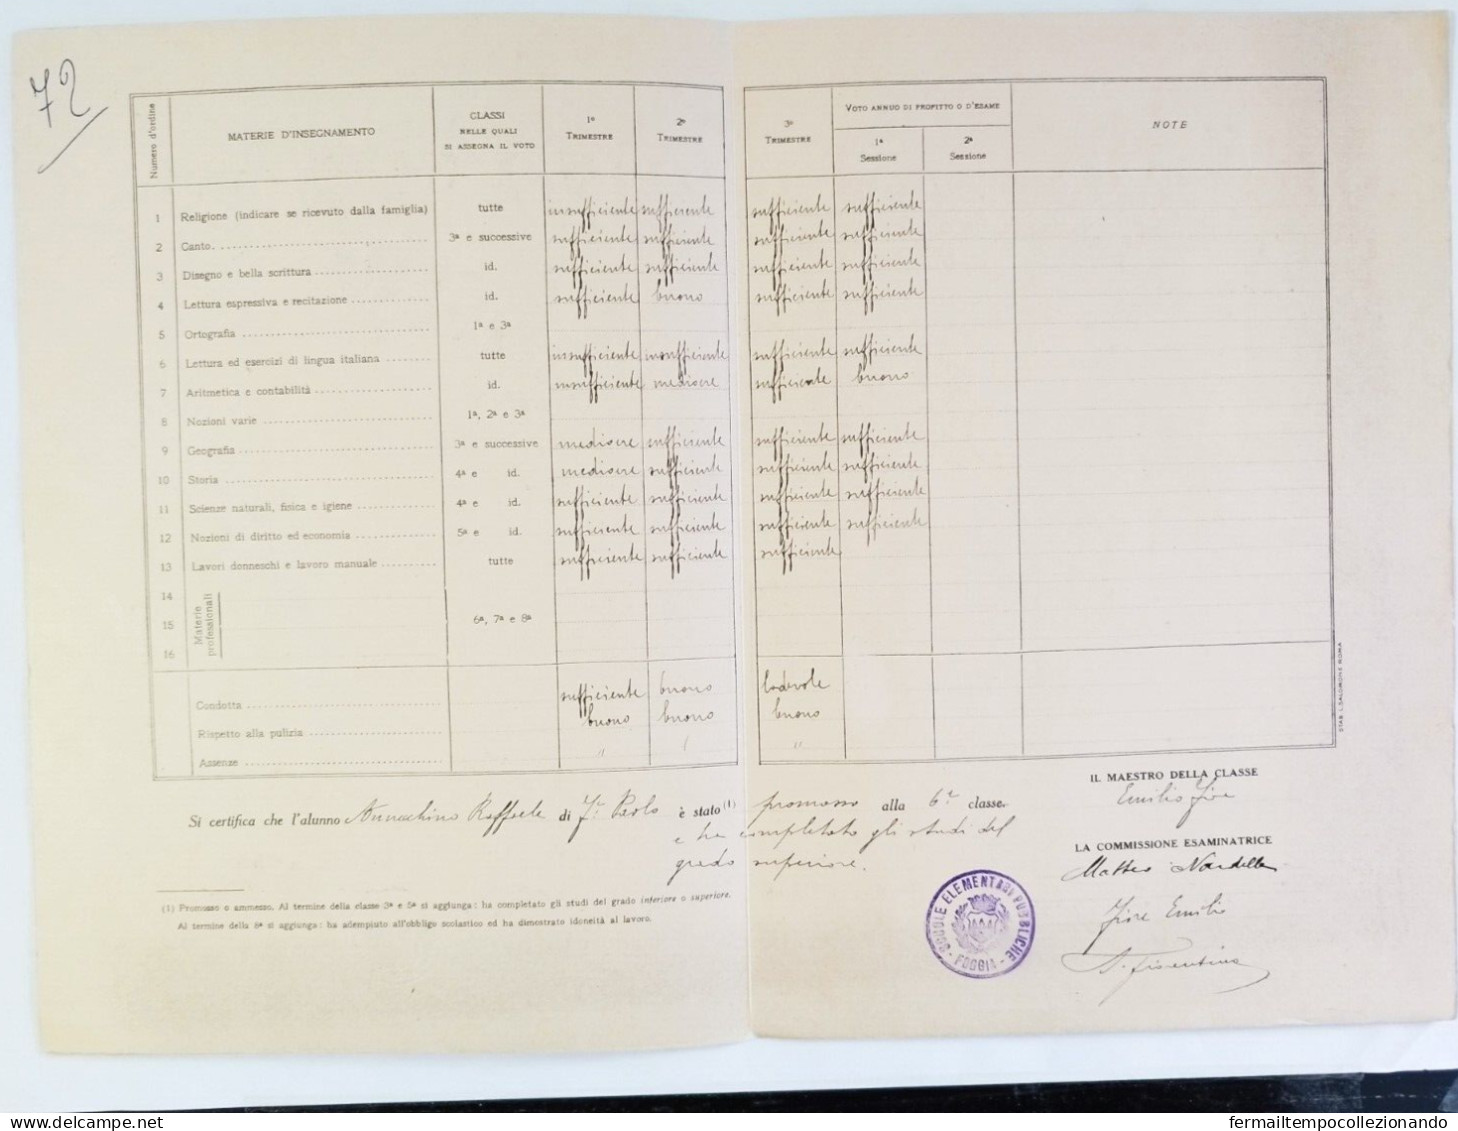 72
Numero d'ordine
MATERIE D'INSEGNAMENTO
CLASSI
NELLE QUALI
SI ASSEGNA IL VOTO
1º
TRIMESTRE
2º
TRIMESTRE
3º
TRIMESTRE
VOTO ANNUO DI PROFITTO O D'ESAME
1ª
Sessione
2ª
Sessione
NOTE
1 Religione (indicare se ricevuto dalla famiglia) tutte insufficiente sufficiente sufficiente sufficiente
2 Canto. 3ª e successive sufficiente sufficiente sufficiente sufficiente
3 Disegno e bella scrittura id. sufficiente sufficiente sufficiente sufficiente
4 Lettura espressiva e recitazione id. sufficiente buono sufficiente sufficiente
5 Ortografia 1ª e 3ª
6 Lettura ed esercizi di lingua italiana tutte insufficiente insufficiente sufficiente sufficiente
7 Aritmetica e contabilità id. insufficiente mediocre sufficiente buono
8 Nozioni varie 1ª, 2ª e 3ª
9 Geografia 3ª e successive mediocre sufficiente sufficiente sufficiente
10 Storia 4ª e id. mediocre sufficiente sufficiente sufficiente
11 Scienze naturali, fisica e igiene 4ª e id. sufficiente sufficiente sufficiente sufficiente
12 Nozioni di diritto ed economia 5ª e id. sufficiente sufficiente sufficiente sufficiente
13 Lavori donneschi e lavoro manuale tutte sufficiente sufficiente sufficiente
14
15 Materie professionali 6ª, 7ª e 8ª
16
Condotta sufficiente buono lodevole
Rispetto alla pulizia buono buono buono
Assenze " "
STAB. L. SALOMONE ROMA
Si certifica che l'alunno Raffaele di Paolo è stato (1) promosso alla 6ª classe.
e ha completato gli studi del
grado superiore.
IL MAESTRO DELLA CLASSE
Emilio Fiore
LA COMMISSIONE ESAMINATRICE
Matteo Nardella
Fiore Emilio
Fiorentino
SCUOLE ELEMENTARI PUBBLICHE - FOGGIA -
(1) Promosso o ammesso. Al termine della classe 3ª e 5ª si aggiunga: ha completato gli studi del grado inferiore o superiore.
Al termine della 8ª si aggiunga: ha adempiuto all'obbligo scolastico ed ha dimostrato idoneità al lavoro.
fermailtempocollezionando